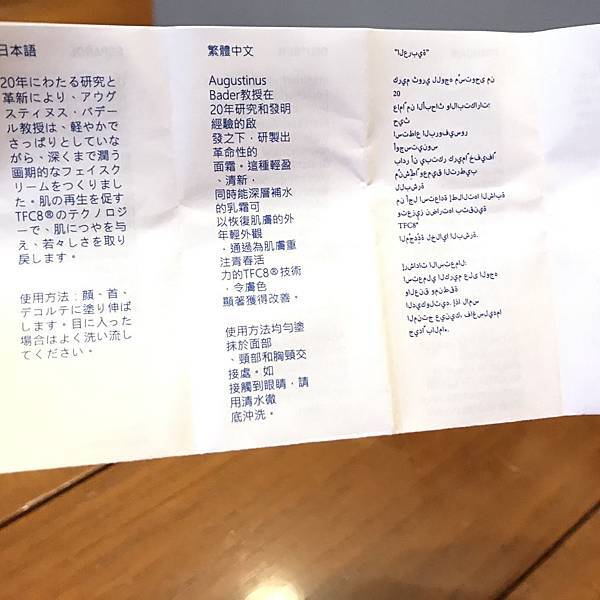 日本語
20年にわたる研究と
革新により、アウグ
スティヌス・バデー
ル教授は、軽やかで
さっぱりとしていな
がら、深くまで潤う
画期的なフェイスク
リームをつくりまし
た。肌の再生を促す
TFC8®のテクノロジ
ーで、肌につやを与
え、若々しさを取り
戻します。
使用方法：顔、首、
デコルテに塗り伸ば
します。目に入った
場合はよく洗い流し
てください。
繁體中文
Augustinus
Bader教授在
20年研究和發明
經驗的啟
發之下，研製出
革命性的
面霜。這種輕盈
、清新，
同時能深層補水
的乳霜可
以恢復肌膚的外
年輕外觀
，通過為肌膚重
注青春活
力的TFC8®技術
，令膚色
顯著獲得改善。
使用方法均勻塗
抹於面部
、頸部和胸頸交
接處。如
接觸到眼睛，請
用清水徹
底沖洗。
"العربية"
كريم ثوري للوجه مُستوحى من
20
عامًا من الأبحاث والابتكارات؛
حيث
استطاع البروفيسور
أوجستينوس
بادر أن يبتكر كريمًا خفيفًا
للبشرة
TFC8®
إرشادات الاستعمال: